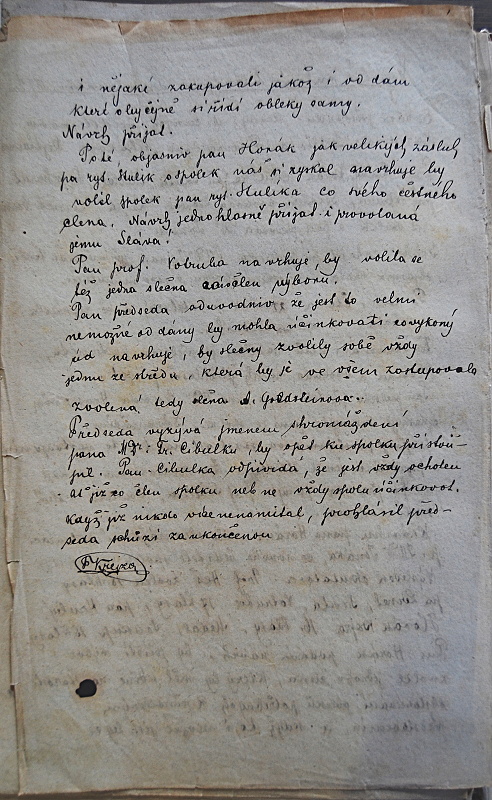 i nějaké zakupovali jakož i od dám
které obyčejně si řídí obleky samy.
Návrh přijat.
Poté, objasniv pan Horák jak velikých zásluh
pa ryt. Hulik o spolek náš si získal navrhuje by
volil spolek pan ryt. Hulika co svého čestného
člena. Návrh jednohlasně přijat i provolaná
jemu Sláva!
Pan prof. Votruba navrhuje, by volila se
též jedna slečna co členem výboru.
Pan předseda odůvodniv, že jest to velmi
nemožné od dámy by mohla účinkovati co výkoný
úd navrhuje, by slečny zvolily sobě vždy
jednu ze středu, která by je ve všem zastupovala
zvolená tedy slečna A. Goldsteinova.
Předseda vyzývá jmenem shromáždění
pana Dr. Cibulku, by opět ku spolku přistou-
pil. Pan Cibulka odpovídá, že jest vždy ochoten
ať již co člen spolku neb ne vždy spolu účinkovat.
Když již nikdo více nenamítal, prohlásil před-
seda schůzi za ukončenou